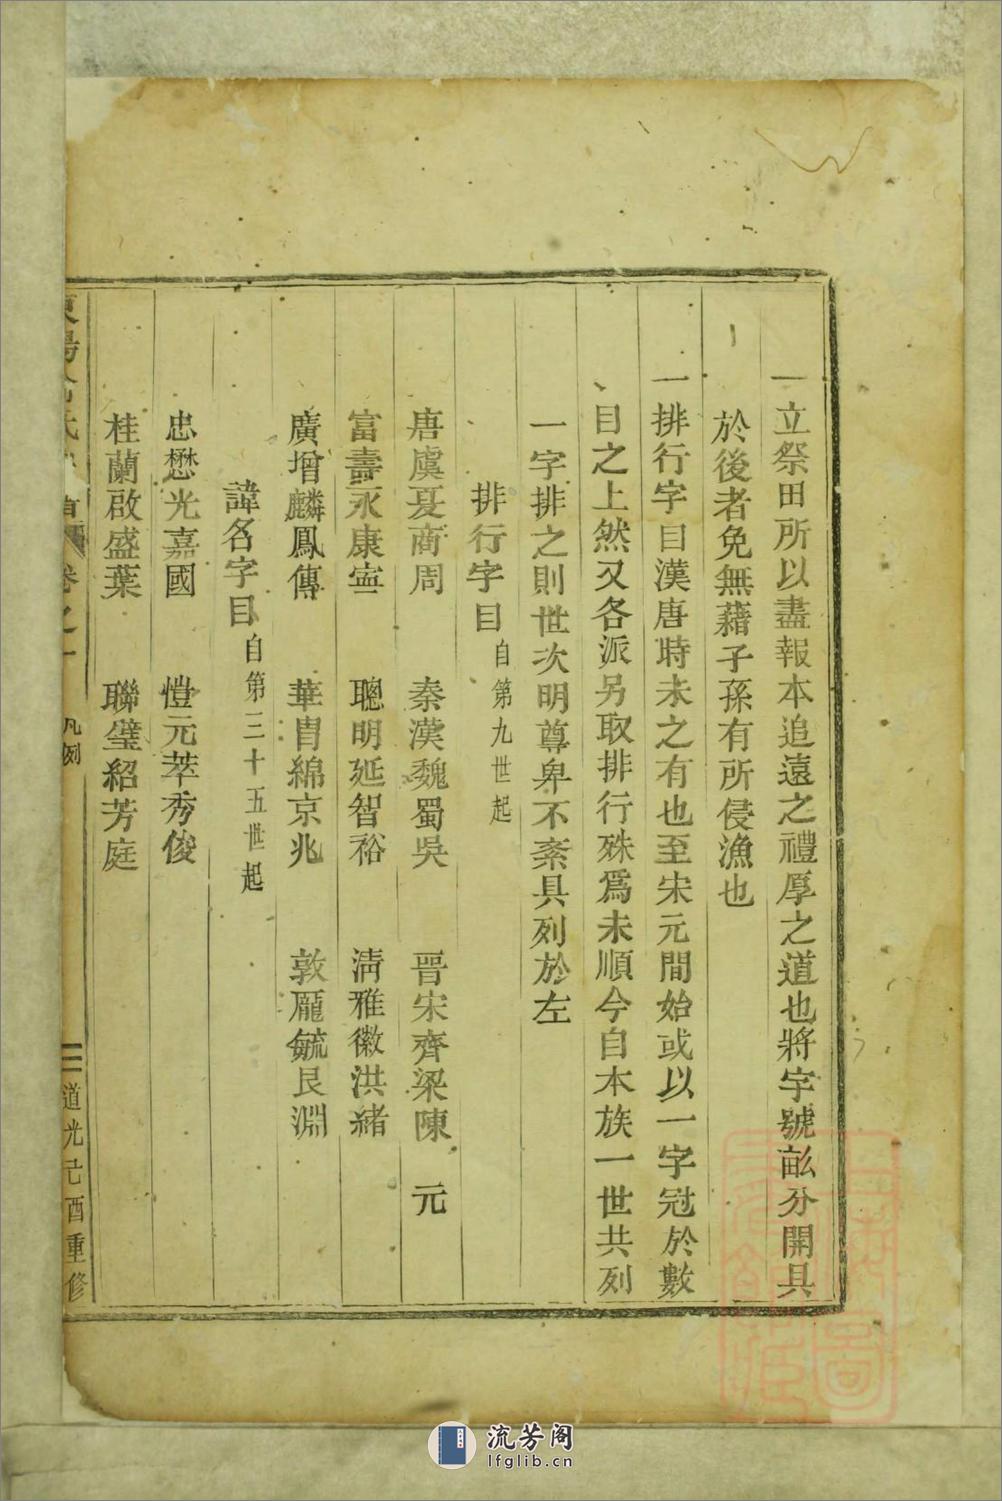 一立祭田所以盡報本追遠之禮厚之道也將字號畝分開具
於後者免無藉子孫有所侵漁也
一排行字目漢唐時未之有也至宋元間始或以一字冠於數
目之上然又各派另取排行殊爲未順今自本族一世共列
一字排之則世次明尊卑不紊具列於左
排行字目 自第九世起
唐虞夏商周 秦漢魏蜀吳 晉宋齊梁陳 元
富壽永康寍 聰明延智裕 淸雅徽洪緒
廣增麟鳳傳 華胄綿京兆 敦龐毓艮淵
諱名字目 自第三十五世起
忠懋光嘉國 愷元萃秀俊
桂蘭啟盛葉 聯璧紹芳庭
東陽 氏 卷之一 凡例 二 道光己酉重修
流芳阁
lfglib.cn